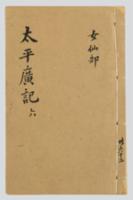 女仙部
太平廣記
六